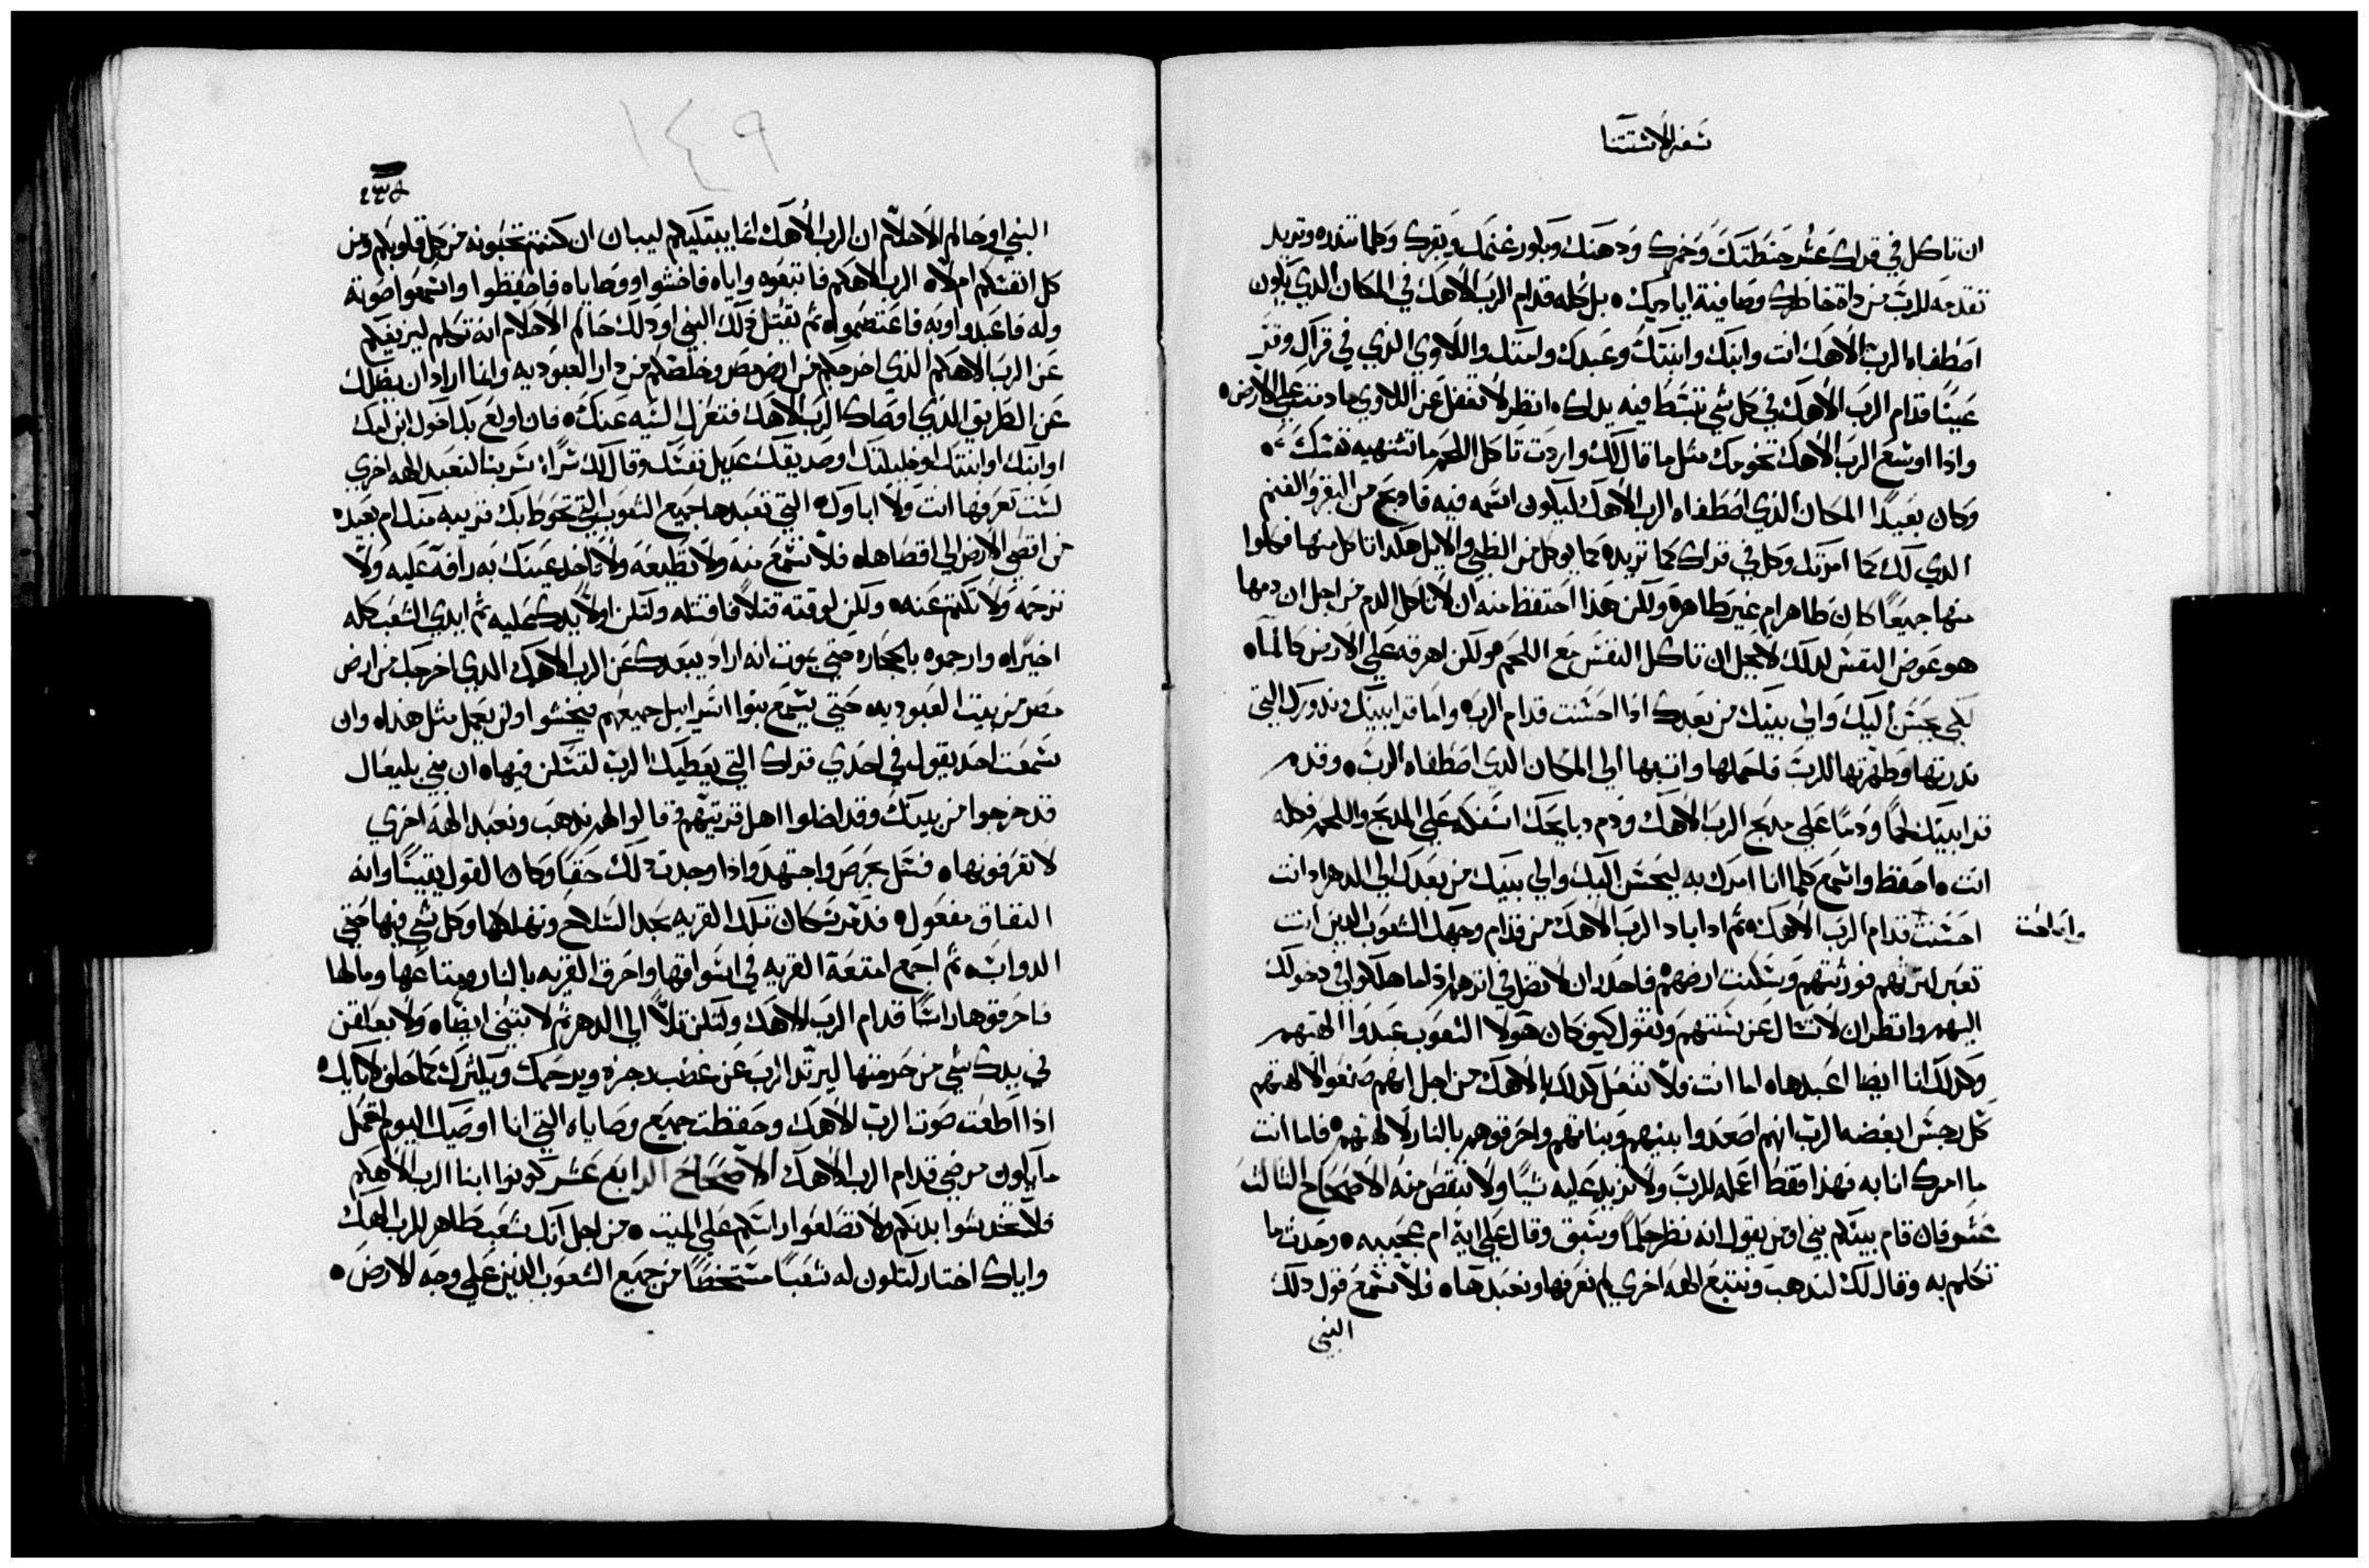 سفر الاستثنا
ان تاكل في قراك عشر حنطتك وخمرك ودهنك وبكور غنمك وبقرك وكلما تنذره وتريد
تقدمه للرب من داة خاطرك وصافية اياديك ۰ بل كله قدام الرب الاهك في المكان الدي يكون
اصطفاه الرب الاهك انت وابنك وابنتك وعبدك وامتك واللاوي الدي في قراك وقر
عينًا قدام الرب الاهك في كل شي تنبسط فيه يداك ۰ انظر لا تغفل عن اللاوي ما دمت علي الارض ۰
واذا اوسع الرب الاهك تخومك مثل ما قال لك واردت تاكل اللحم ما تشتهيه نفسك ۰
وكان بعيدًا المكان الدي اصطفاه الرب الاهك ليكون اسمه فيه فادبح من البقر والغنم
الدي لك كما امرتك وكل في قراك كما تريد ۰ كما يوكل من الظبي والايل هكدا تاكل منها فكلوا
منها جميعًا كان طاهر ام غير طاهر ۰ ولكن هذا احتفظ منه ان لا تاكل الدم من اجل ان دمها
هو عوض النفس لدلك لا يحل ان تاكل النفس مع اللحم ۰ ولكن اهرقه علي الارض كالماء
لكي يحسن اليك والي بنيك من بعدك اذا احسنت قدام الرب ۰ واما قرابينك وندورك التي
ندرتها وطهرتها للرب فاحملها واتي بها الي المكان الدي اصطفاه الرب ۰ وقدم
قرابينك لحمًا ودمًا علي مدبح الرب الاهك ودم دبايحك اسفكه علي المدبح واللحم فكله
انت ۰ احفظ واسمع كلما انا امرك به ليحسن اليك والي بنيك من بعدك الي الدهر اد انت
احسنت قدام الرب الاهك ۰ ثم ادا اباد الرب الاهك من قدام وجهك الشعوب الدين انت
وامامت
تعبر لترثهم فورثتهم وسكنت ارضهم فاحدر ان لا تضل في اثرهم اذا ما هلكوا في دخولك
اليهم وانظر ان لا تسال عن سننهم وتقول كيف كان هولا الشعوب عبدوا الهتهم
وكدلك انا ايضا اعبدها ۰ اما انت فلا تفعل كدلك بالاهك من اجل انهم صنعوا لالهتهم
كل رجس ابغضه الرب انهم اصعدوا بنيهم وبناتهم واحرقوهم بالنار لالهتهم ۰ فاما انت
ما امرك انا به فهذا فقط اعمله للرب ولا تزيد عليه شيًا ولا تنقص منه الاصحاح التالت
عشر فان قام بينكم نبي او من يقول انه نظر حلمًا وسبق وقال علي اية ام عجيبه ۰ وحدث ما
تكلم به وقال لك لندهب ونتبع الهة اخري لم نعرفها ونعبدها ۰ فلا تسمع قول دلك
النبي
١٤٩
٤٣٥
النبي او حالم الاحلام ان الرب الاهك انما يبتليكم ليبان ان كنتم تحبونه من كل قلوبكم ومن
كل انفسكم ام لا ۰ الرب الاهكم فاتبعوه واياه فاخشوا ووصاياه فاحفظوا واسمعوا صوته
وله فاعبدوا وبه فاعتصموا ۰ ثم يقتل دلك النبي او دلك حالم الاحلام انه تكلم ليزيغكم
عن الرب الاهكم الذي اخرجكم من ارض مصر وخلصكم من دار العبوديه وانما اراد ان يضلك
عن الطريق الذي اوصاك الرب الاهك فتعزل السيه عنك ۰ فان اولع بك اخوك ابن امك
او ابنك او ابنتك او خليلتك او صديقك عديل نفسك وقال لك سرًا سر بنا لنعبد الهه اخري
لست تعرفها انت ولا اباوك ۰ التي تعبدها جميع الشعوب التي تحوط بك قريبه منك ام بعيده
من اقصي الارض الي اقصاها ۰ فلا تسمع منه ولا تطيعه ولا تاخد عينك به رافة عليه ولا
ترحمه ولا تكتم عنه ۰ ولكن لوقته قتلاً فاقتله ولتكن اولاً يدك عليه ثم ايدي الشعب كله
اخيرا ۰ وارجموه بالحجاره حتي يموت انه اراد يبعدك عن الرب الاهك الدي اخرجك من ارض
مصر من بيت العبوديه حتي يسمع بنوا اسراييل جميعهم فيخشوا ولن يعمل مثل هذا ۰ وان
سمعت احد يقول في احدي قراك التي يعطيك الرب لتسكن فيها ۰ ان بني بليعال
قد خرجوا من بينك وقد اضلوا اهل قريتهم وقالوا لهم ندهب ونعبد الهة اخري
لا تعرفونها ۰ فسل بحرص واجتهد واذا وجدت دلك حقًا وكان القول يقينًا وانه
النفاق مفعول ۰ فدمر سكان تلك القريه بحد السلاح وتهلكها وكل شي فيها حتي
الدواب ۰ ثم اجمع امتعة القريه في اسواقها واحرق القريه بالنار ومتاعها ومالها
فاحرقوها راسًا قدام الرب الاهك ولتكن تلاً الي الدهر ثم لا تبتني ايضًا ۰ ولا يعلقن
في يدك شي من حرمتها ليرتد الرب عن غضب رجزه ويرحمك ويكثرك كما حلف لابايك
اذا اطعت صوت الرب الاهك وحفظت جميع وصاياه التي انا اوصيك اليوم لتعمل
ما يكون مرضي قدام الرب الاهك الاصحاح الرابع عشر كونوا ابنا الرب الاهكم
فلا تخدشوا بدنكم ولا تصلعوا راسكم علي الميت ۰ من اجل انك شعب طاهر للرب الهك
واياك اختار لتكون له شعبًا مستخصًا من جميع الشعوب الدين علي وجه الارض ۰